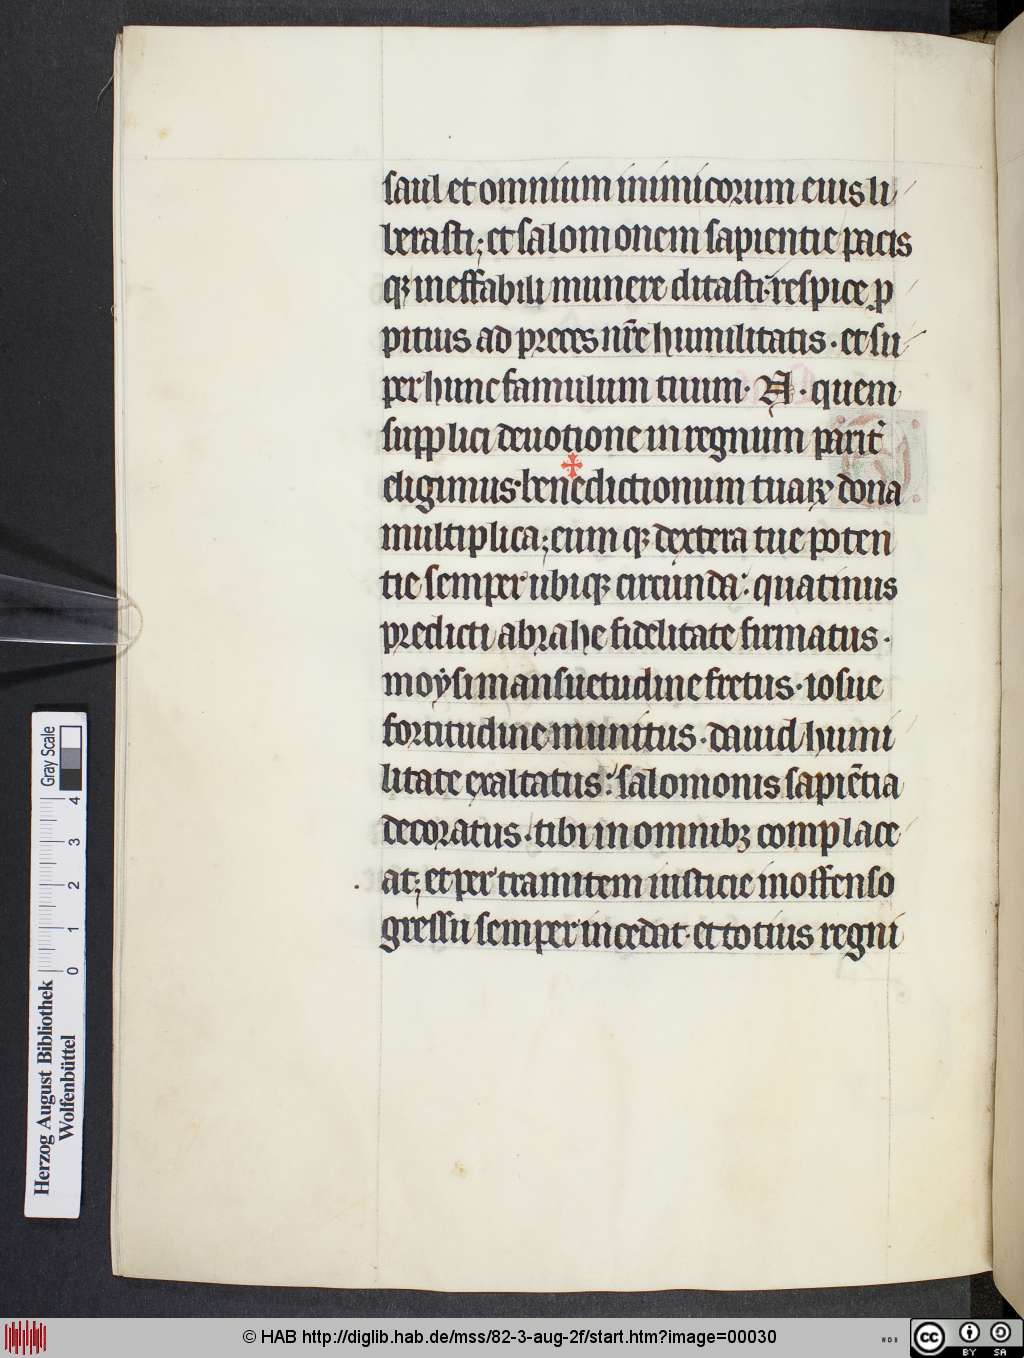 saul et omnium inimicorum eius li
berasti; et salomonem sapientie pacis
qꝫ ineffabili munere ditasti· respice ꝓ
pitius ad preces nr̄e humilitatis · et su
per hunc famulum tuum · N · quem
supplici deuotione in regnum parit̄
eligimus· benedictionum tuaꝝ dona
multiplica; eum qꝫ dextera tue poten
tie semper ubiqꝫ circunda: quatinus
predicti abrahe fidelitate firmatus ·
moẏsi mansuetudine fretus · iosue
fortitudine munitus · dauid humi
litate exaltatus: salomonis sapiētia
decoratus · tibi in omnibꝫ complace
at; et per tramitem iusticie inoffenso
gressu semper incedat · et totius regni
Gray Scale
0 1 2 3 4
Herzog August Bibliothek
Wolfenbüttel
© HAB http://diglib.hab.de/mss/82-3-aug-2f/start.htm?image=00030
WDB
cc BY SA